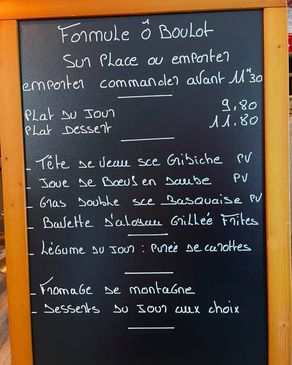 Formule Ô Boulot
Sur Place ou emporter
emporter commander avant 11h30
Plat du Jour 9.80
Plat Dessert 11.80
- Tête de veau sce Gribiche PV
- Joue de Bœuf en Daube PV
- Gras Double sce Basquaise PV
- Bavette D'aloyau Grillée Frites
- Légume du Jour : Purée de carottes
- Fromage de montagne
- Desserts du Jour aux choix